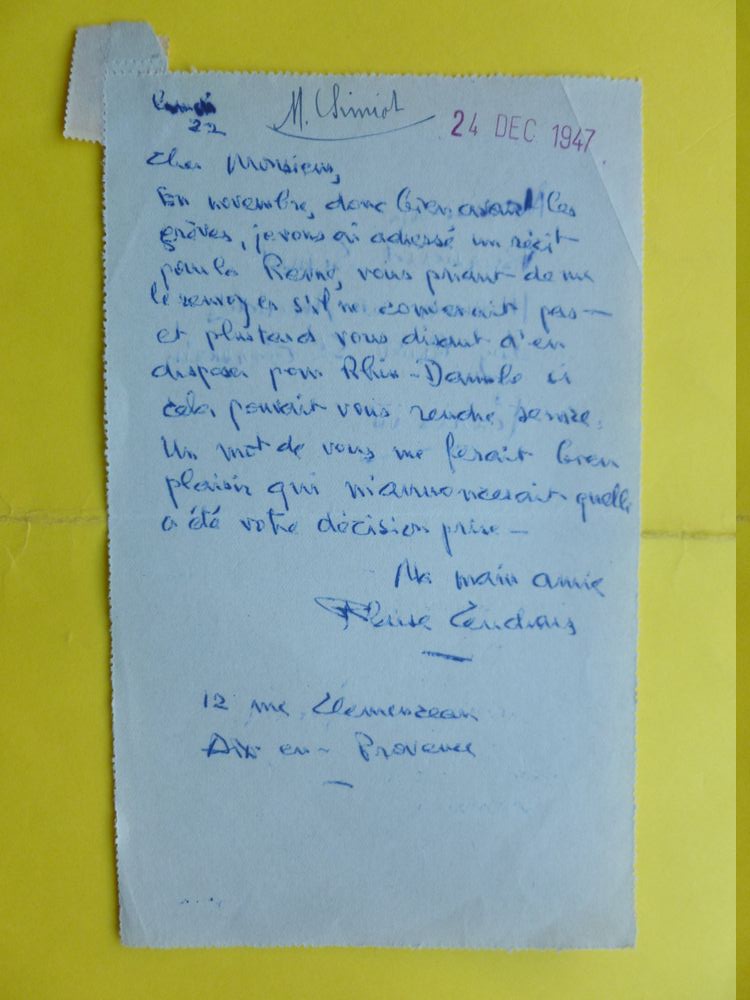 Lundi
22
M. Chimiot
24 DEC 1947.
Cher Monsieur,
En novembre, donc bien avant les
grèves, je vous ai adressé un récit
pour la Revue, vous priant de me
le renvoyer s'il ne convenait pas —
et plus tard vous disant d'en
disposer pour Rhin-Danube si
cela pouvait vous rendre service.
Un mot de vous me ferait bien
plaisir qui m'annoncerait quelle
a été votre décision prise —
Ma main amie
12 rue Clemenceau
Aix-en-Provence